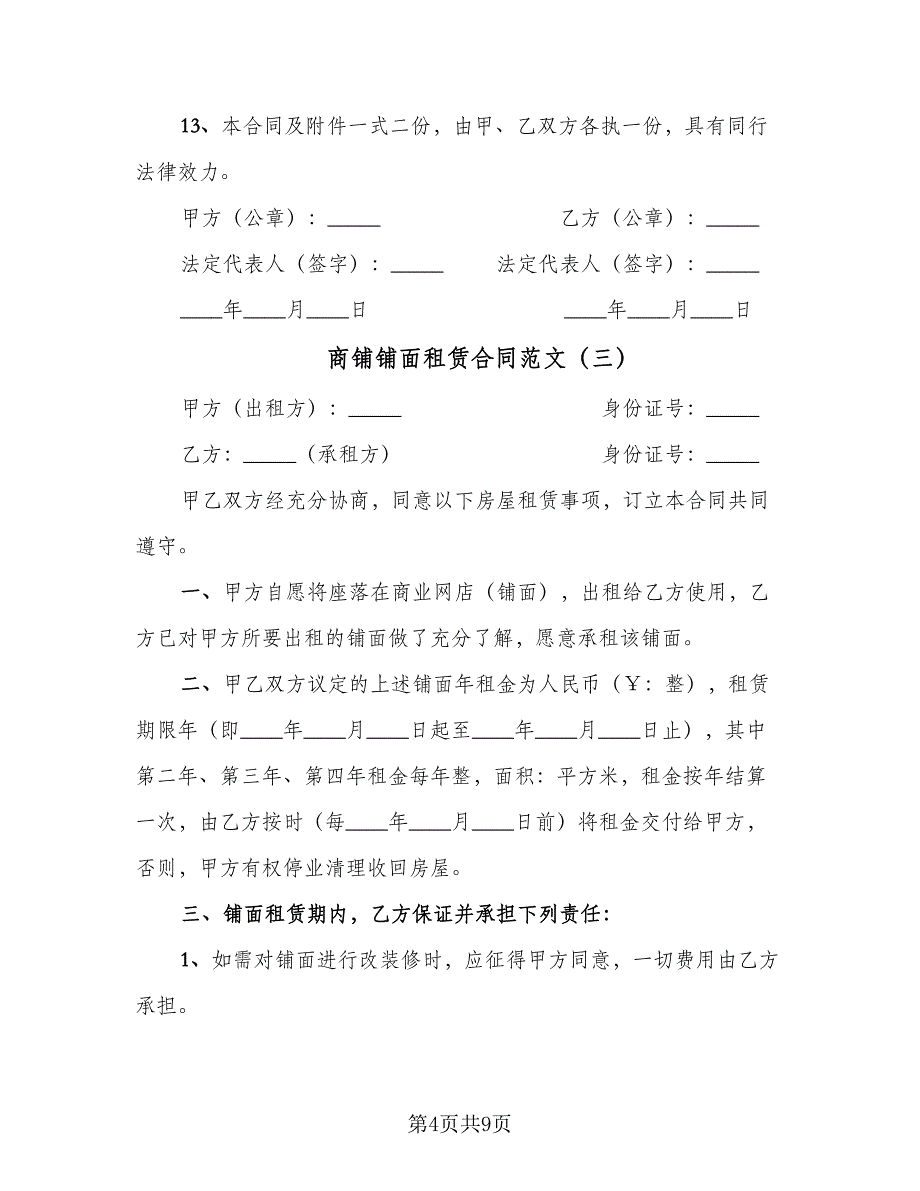 13、本合同及附件一式二份，由甲、乙双方各执一份，具有同行
法律效力。
甲方（公章）：_____ 乙方（公章）：_____
法定代表人（签字）：_____ 法定代表人（签字）：_____
____年____月____日 ____年____月____日
商铺铺面租赁合同范文（三）
甲方（出租方）：_____ 身份证号：_____
乙方：_____（承租方） 身份证号：_____
甲乙双方经充分协商，同意以下房屋租赁事项，订立本合同共同
遵守。
一、甲方自愿将座落在商业网店（铺面），出租给乙方使用，乙
方已对甲方所要出租的铺面做了充分了解，愿意承租该铺面。
二、甲乙双方议定的上述铺面年租金为人民币（￥：整），租赁
期限年（即____年____月____日起至____年____月____日止），其中
第二年、第三年、第四年租金每年整，面积：平方米，租金按年结算
一次，由乙方按时（每____年____月____日前）将租金交付给甲方，
否则，甲方有权停业清理收回房屋。
三、铺面租赁期内，乙方保证并承担下列责任：
1、如需对铺面进行改装修时，应征得甲方同意，一切费用由乙方
承担。
第4页共9页